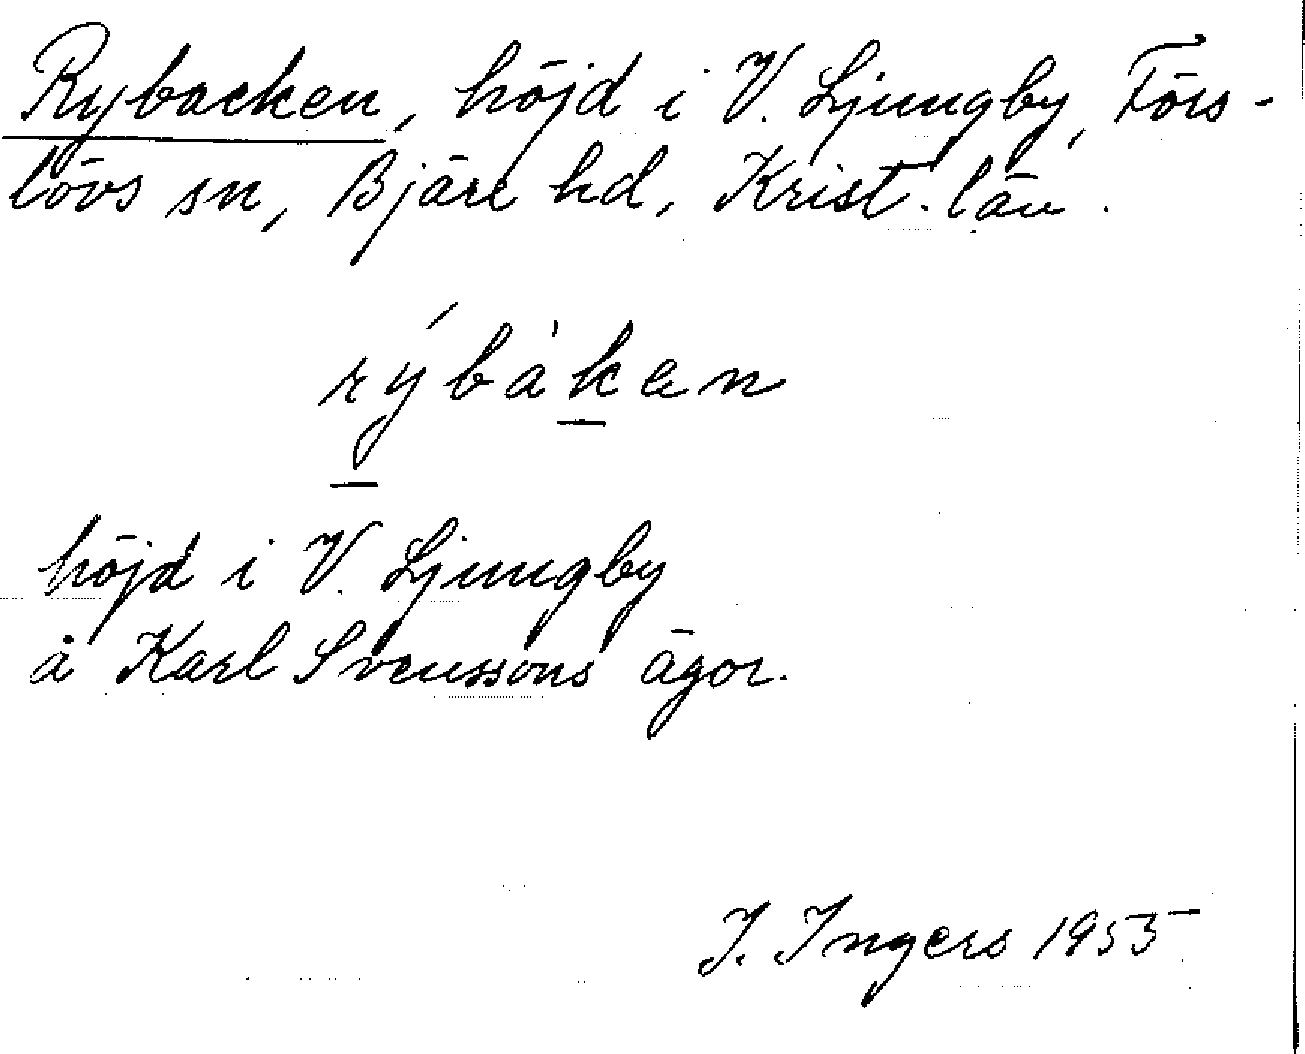 Rybacken, höjd i V. Ljungby, Förs-
lövs sn, Bjäre hd, Krist. län.
rýbàken
höjd i V. Ljungby
å Karl Svenssons ägor.
I. Ingers 1955